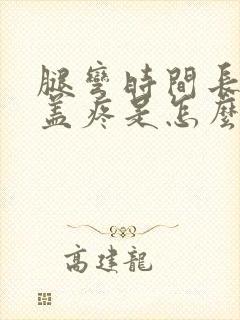 腿彎時間長
蓋疼是怎麼
高建龍